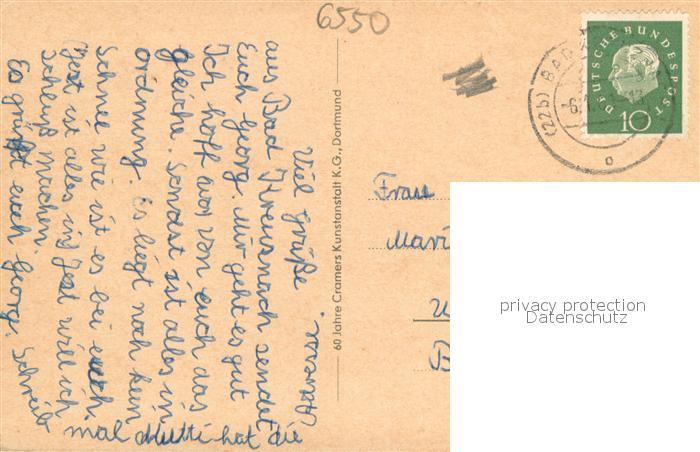 6550
Viel Grüße
aus Bad Kreuznach sendet
Euch Georg. Mir geht es gut
Ich hoff das von euch das
gleiche. Sondst ist alles in
ordnung. Es liegt noch kein
Schnee wie ist es bei euch.
Jezt ist alles in Jezt will ich
Schluß machen.
Es grüßt euch Georg. Schreib
mal Mutti hat die
60 Jahre Cramers Kunstanstalt K.G., Dortmund
DEUTSCHE BUNDESPOST
10
(22b) BAD
Frau
Mari
privacy protection
Datenschutz